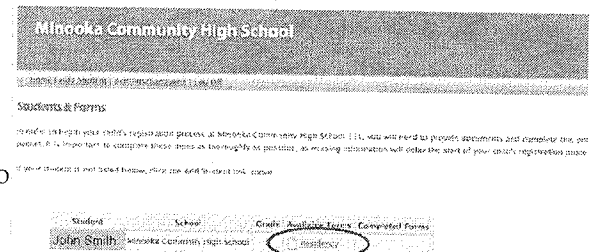 Minooka Community High School
Students & Forms
your child's registration process at Minooka Community High School 111, you will need to provide documents and complete
packet. It is important to complete these items as thoroughly as possible, as missing information will delay the start of your child's registration
If your student is not listed below, click the Add Student link above
Student School Grade Available Forms Completed Forms
John Smith Minooka Community High School Residency